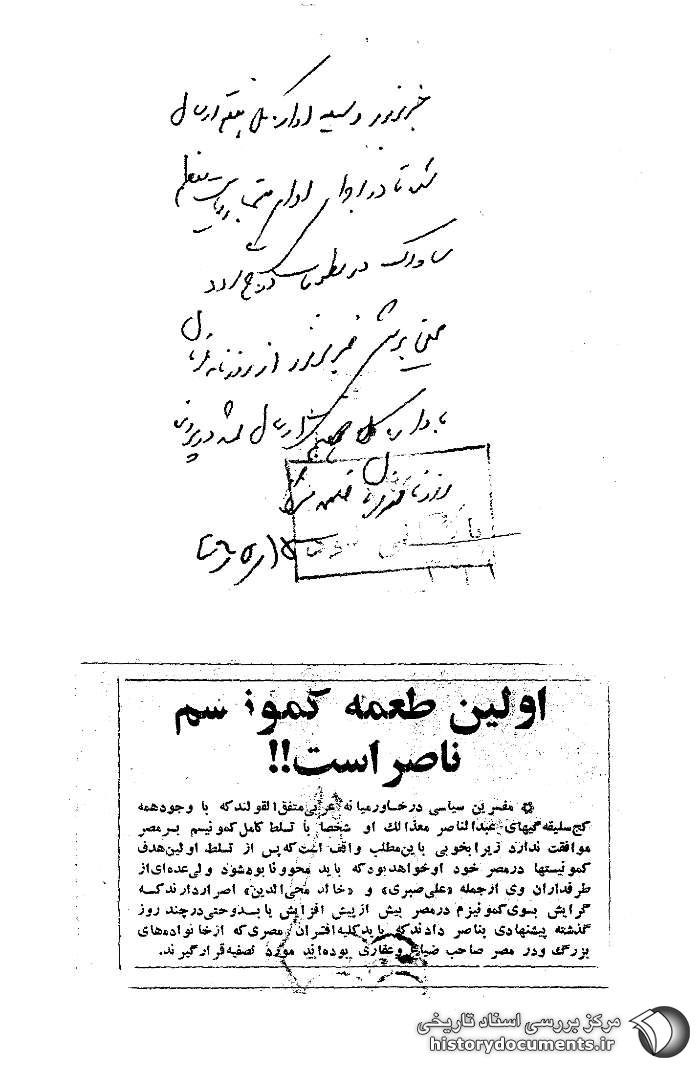 خبر مزبور وسیله اداره کل هفتم ارسال
شد تا در اجرای اوامر
ساواک در مطبوعات درج گردد
ضمناً برش خبر مزبور از روزنامه
به اداره کل ارسال
روزنامه
اولین طعمه کمونیسم
ناصر است!!
مفسرین سیاسی در خاورمیانه عربی متفق القولند که با وجود همه
کج سلیقه گیهای عبدالناصر معذالک او شخصاً با تسلط کامل کمونیسم بر مصر
موافقت ندارد زیرا بخوبی باین مطلب واقف است که پس از تسلط اولین هدف
کمونیستها در مصر خود او خواهد بود که باید محو و نابود شود ولی عده‌ای از
طرفداران وی از جمله «علی صبری» و «خالد محی‌الدین» اصرار دارند که
گرایش بسوی کمونیزم در مصر بیش از پیش افزایش یابد و حتی در چند روز
گذشته پیشنهادی بناصر دادند که باید کلیه افسران مصری که از خانواده‌های
بزرگ و در مصر صاحب ضیاع و عقاری بوده‌اند مورد تصفیه قرار گیرند.
مرکز بررسی اسناد تاریخی
historydocuments.ir